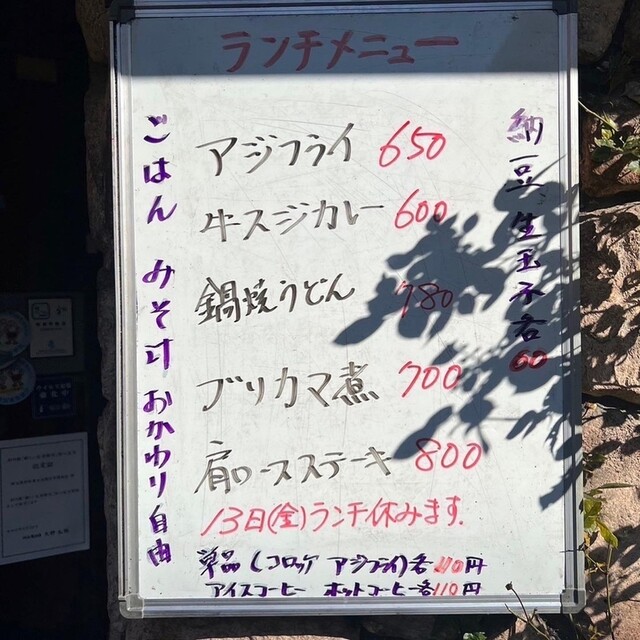 ランチメニュー
ごはん みそ汁 おかわり自由
アジフライ 650
牛スジカレー 600
鍋焼うどん 780
ブリカマ煮 700
肩ロースステーキ 800
納豆 生玉子各60
13日(金)ランチ休みます.
単品(コロッケ アジフライ)各110円
アイスコーヒー ホットコーヒー各110円